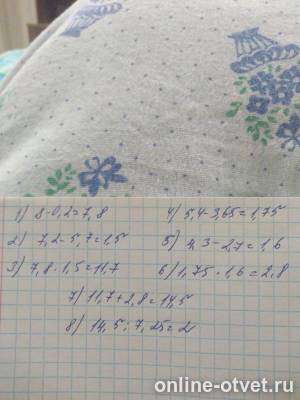 1) 8-0,2=7,8
2) 7,2-5,7=1,5
3) 7,8·1,5=11,7
4) 5,4-3,65=1,75
5) 4,3-2,7=1,6
6) 1,75·1,6=2,8
7) 11,7+2,8=14,5
8) 14,5:7,25=2
online-otvet.ru